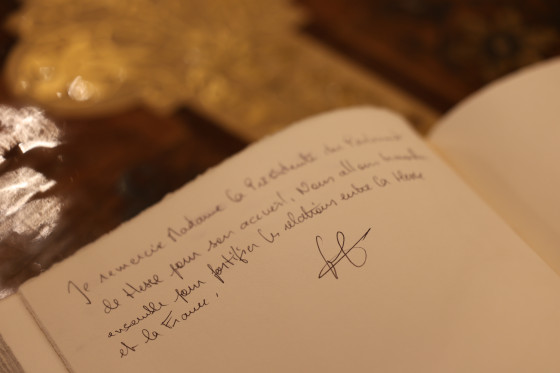 Je remercie Madame la Présidente du Parlement
de Hesse pour son accueil. Nous allons travailler
ensemble pour fortifier les relations entre la Hesse
et la France.